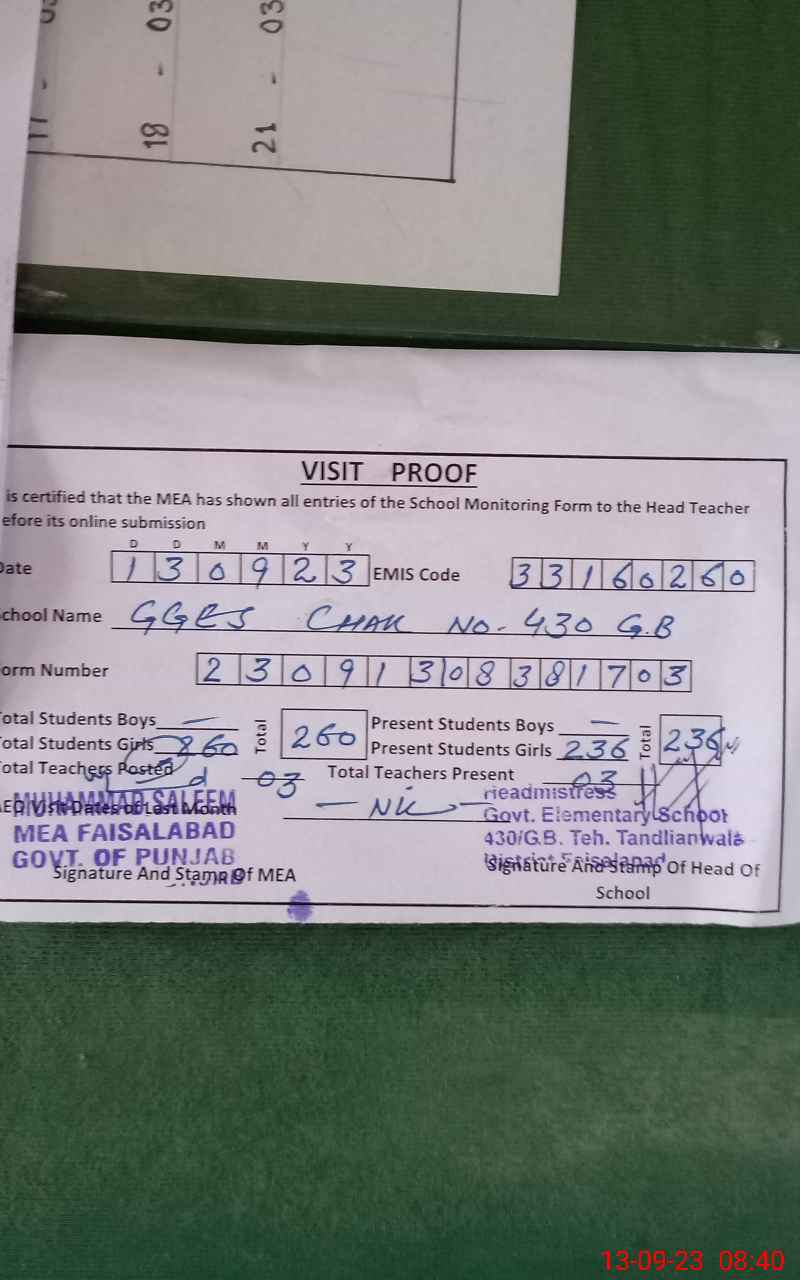 18 - 03
21 - 03
VISIT PROOF
is certified that the MEA has shown all entries of the School Monitoring Form to the Head Teacher
efore its online submission
D D M M Y Y
Date 1 3 0 9 2 3 EMIS Code 3 3 1 6 0 2 6 0
chool Name GGES CHAK NO. 430 G.B
orm Number 2 3 0 9 1 3 0 8 3 8 1 7 0 3
otal Students Boys — Total 260 Present Students Boys — Total 236
otal Students Girls 260 Present Students Girls 236
otal Teachers Posted 03 Total Teachers Present 03
AEO Visit Dates of Last Month — Nil —
MUHAMMAD SALEEM
MEA FAISALABAD
GOVT. OF PUNJAB
Headmistress
Govt. Elementary School
430/G.B. Teh. Tandlianwala
District Faisalabad
Signature And Stamp Of MEA
Signature And Stamp Of Head Of
School
13-09-23 08:40